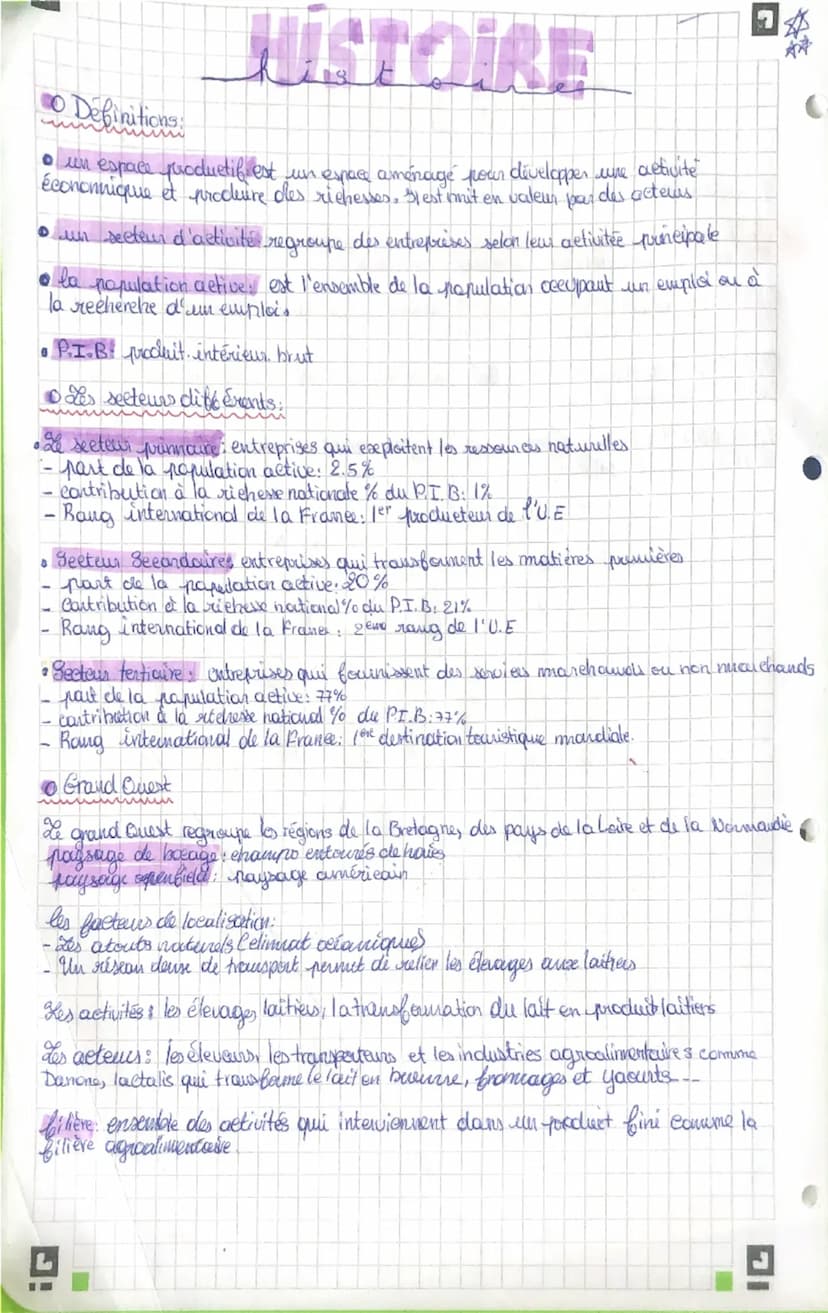 HISTOIRE
histoire
Définitions:
un espace productif: est un espace aménagé pour développer une activité
économique et produire des richesses. Il est mit en valeur par des acteurs
un secteur d'activité regroupe des entreprises selon leur activitée principale
la population active: est l'ensemble de la population occupant un emploi ou à
la recherche d'un emploi.
P.I.B: produit intérieur brut
Les secteurs différents:
Le secteur primaire: entreprises qui exploitent les ressources naturelles
- part de la population active: 2.5%
- contribution à la richesse nationale % du P.I.B: 1%
- Rang international de la France: 1er producteur de l'U.E
Secteur Secondaire: entreprises qui transforment les matières premières
- part de la population active: 20%
- Contribution à la richesse national % du P.I.B: 21%
- Rang international de la France: 2ème rang de l'U.E
Secteur tertiaire: entreprises qui fournissent des services marchands ou non marchands
- part de la population active: 77%
- contribution à la richesse national % du P.I.B: 77%
- Rang international de la France: 1ère destination touristique mondiale.
Grand Ouest
Le grand Ouest regroupe les régions de la Bretagne, des pays de la Loire et de la Normandie
paysage de bocage: champs entourés de haies
paysage openfield: paysage américain
les facteurs de localisation:
- Les atouts naturels (climat océaniques)
- Un réseau dense de transport permet de relier les élevages aux laitiers
Les activités: les élevages laitiers, la transformation du lait en produit laitiers
Les acteurs: les éleveurs, les transporteurs et les industries agroalimentaires comme
Danone, lactalis qui transforme le lait en beurre, fromages et yaourts...
filière: ensemble des activités qui interviennent dans un produit fini comme la
filière agroalimentaire.